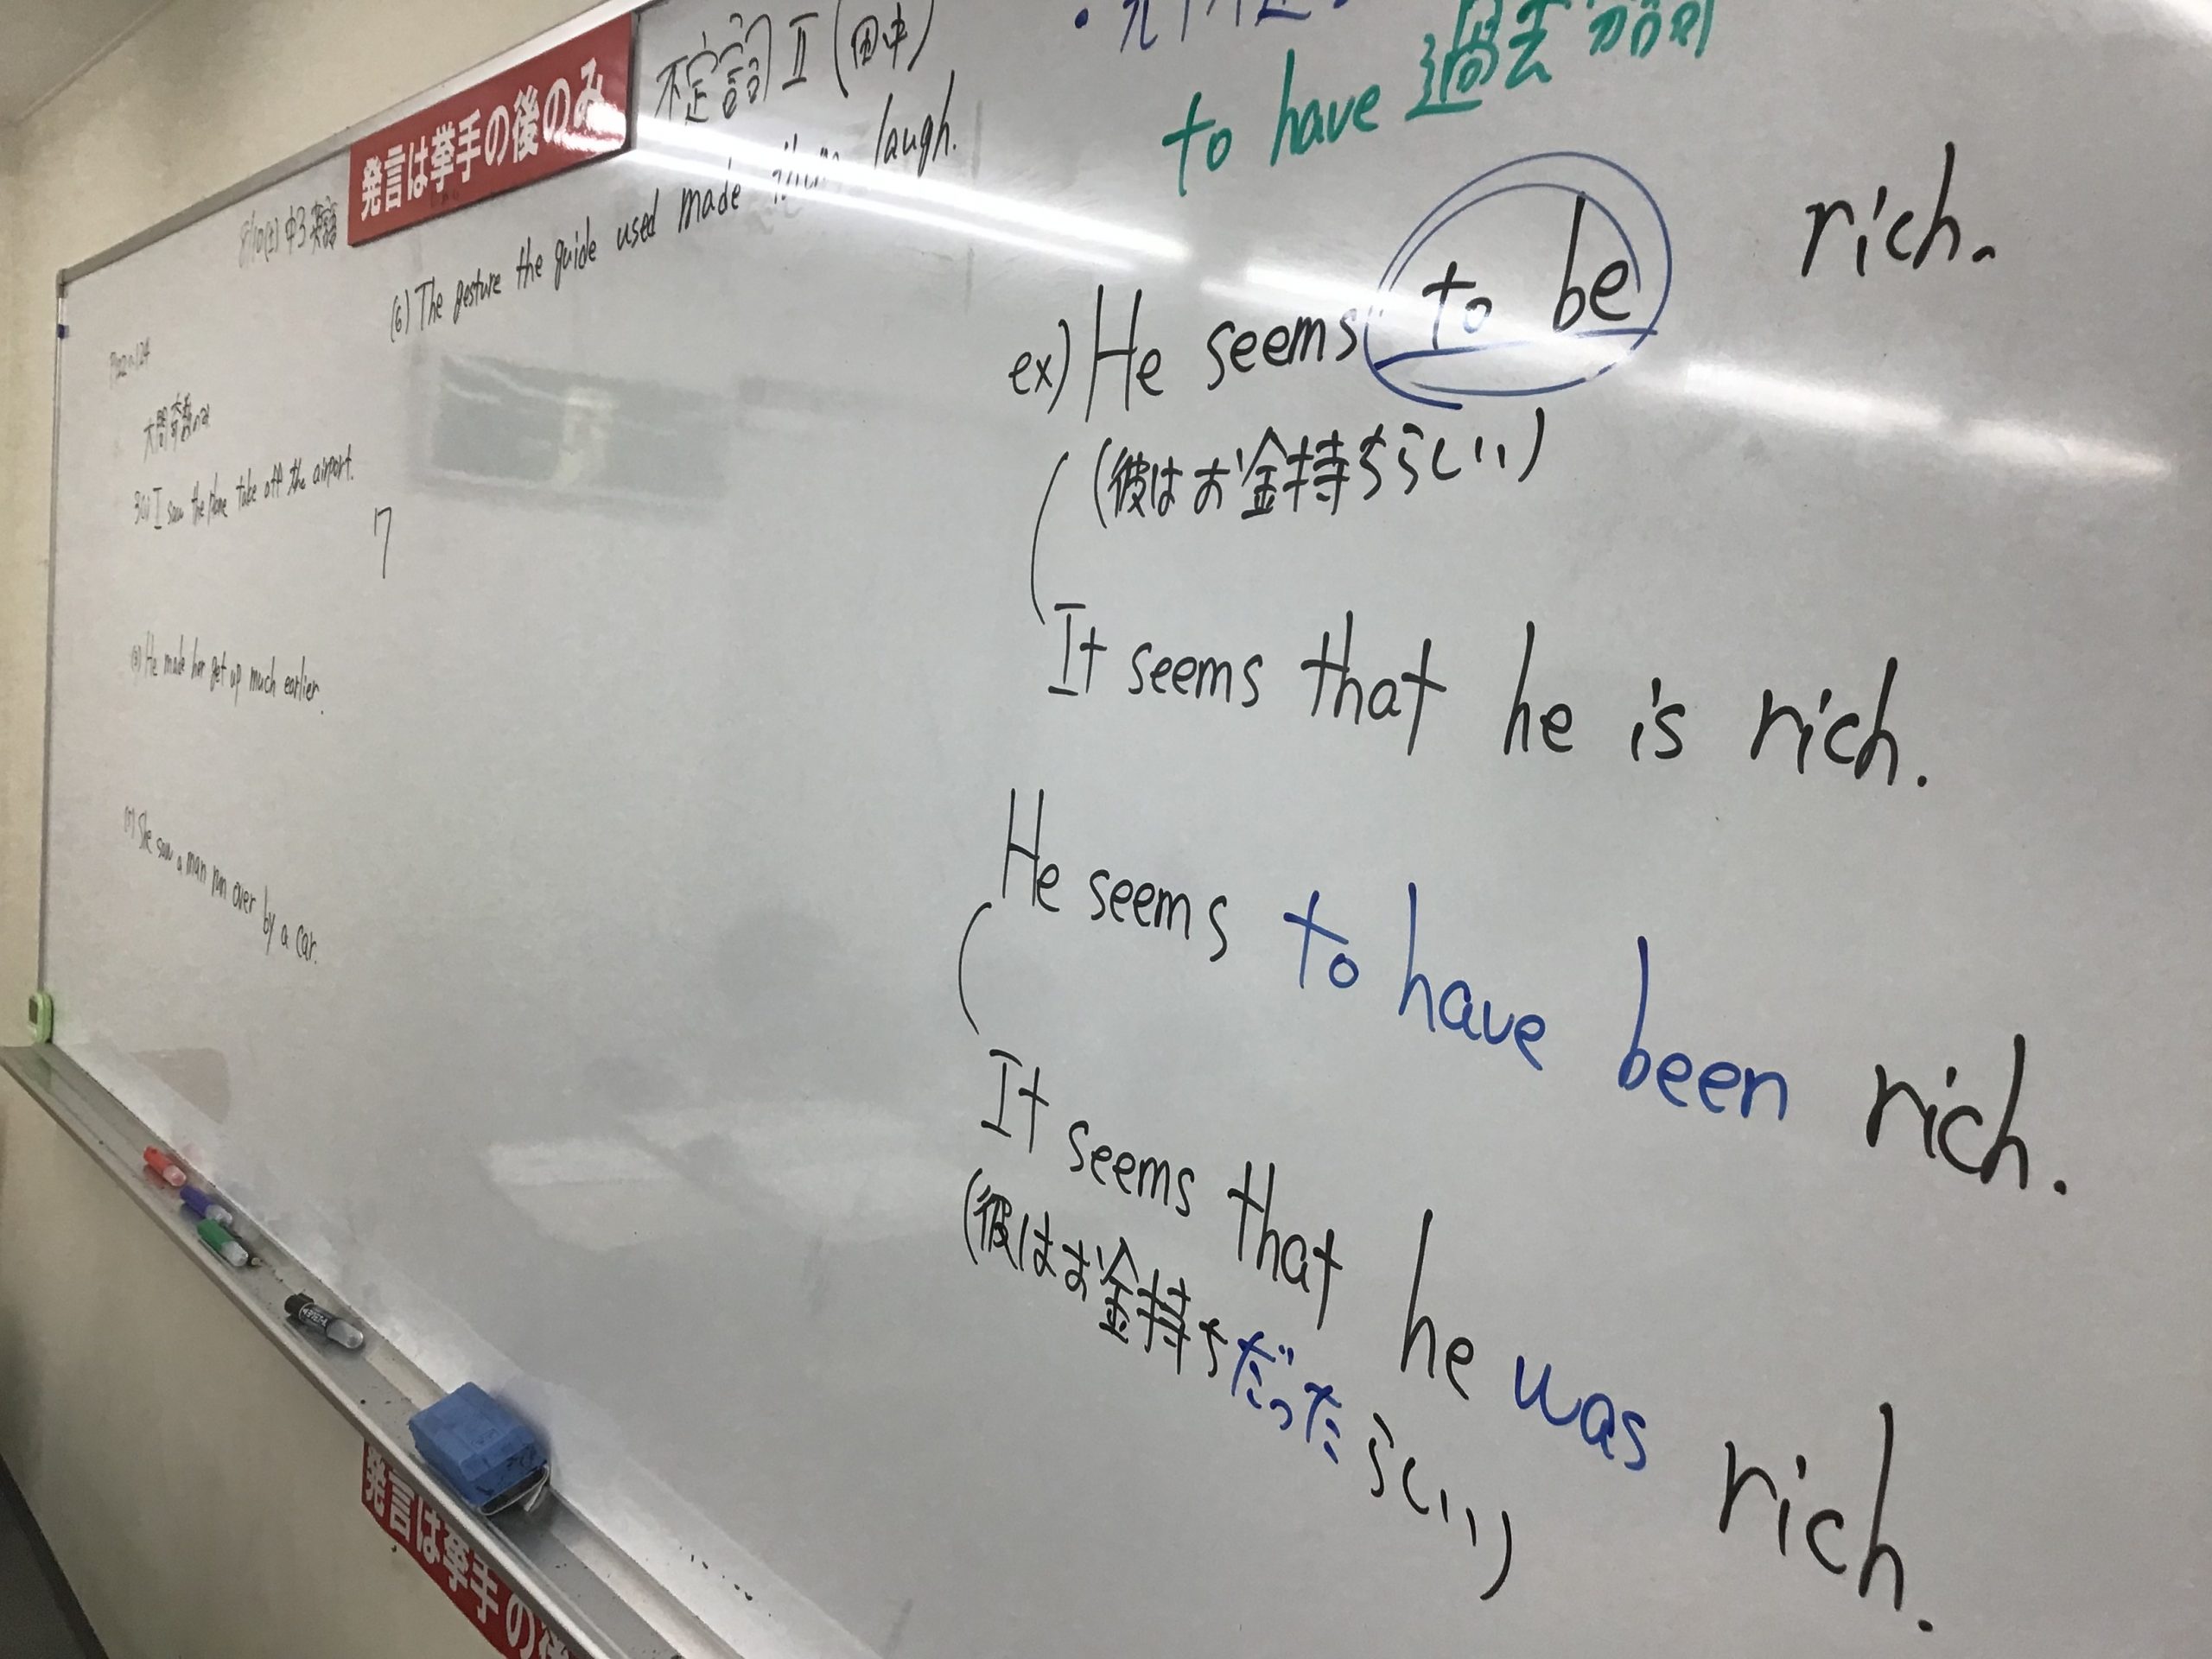 発言は挙手の後のみ
不定詞 II (田中)
8/10(土) 中3 英語
大問奇数のみ
I saw the plane take off the airport.
7
He made her get up much earlier.
She saw a man run over by a car.
(6) The gesture the guide used made them laugh.
to have 過去分詞
ex) He seems to be rich.
(彼はお金持ちらしい)
It seems that he is rich.
He seems to have been rich.
It seems that he was rich.
(彼はお金持ちだったらしい)
発言は挙手の後